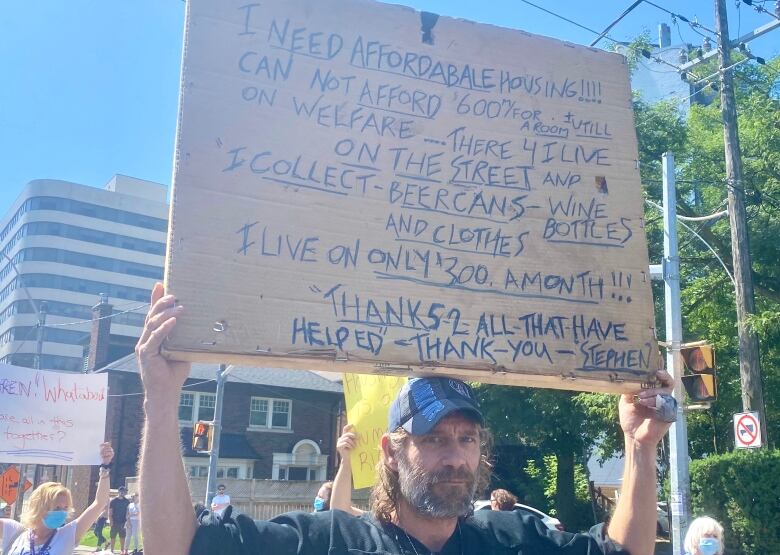 I NEED AFFORDABALE HOUSING!!!!
CAN NOT AFFORD $600°°/FOR A ROOM ± UTILL
ON WELFARE .... THERE 4 I LIVE
ON THE STREET AND
I COLLECT - BEERCANS - WINE BOTTLES
AND CLOTHES
I LIVE ON ONLY $300. A MONTH!!!
"THANKS-2 ALL-THAT-HAVE
HELPED" - THANK-YOU - STEPHEN
REN! What about
are all in this
together?